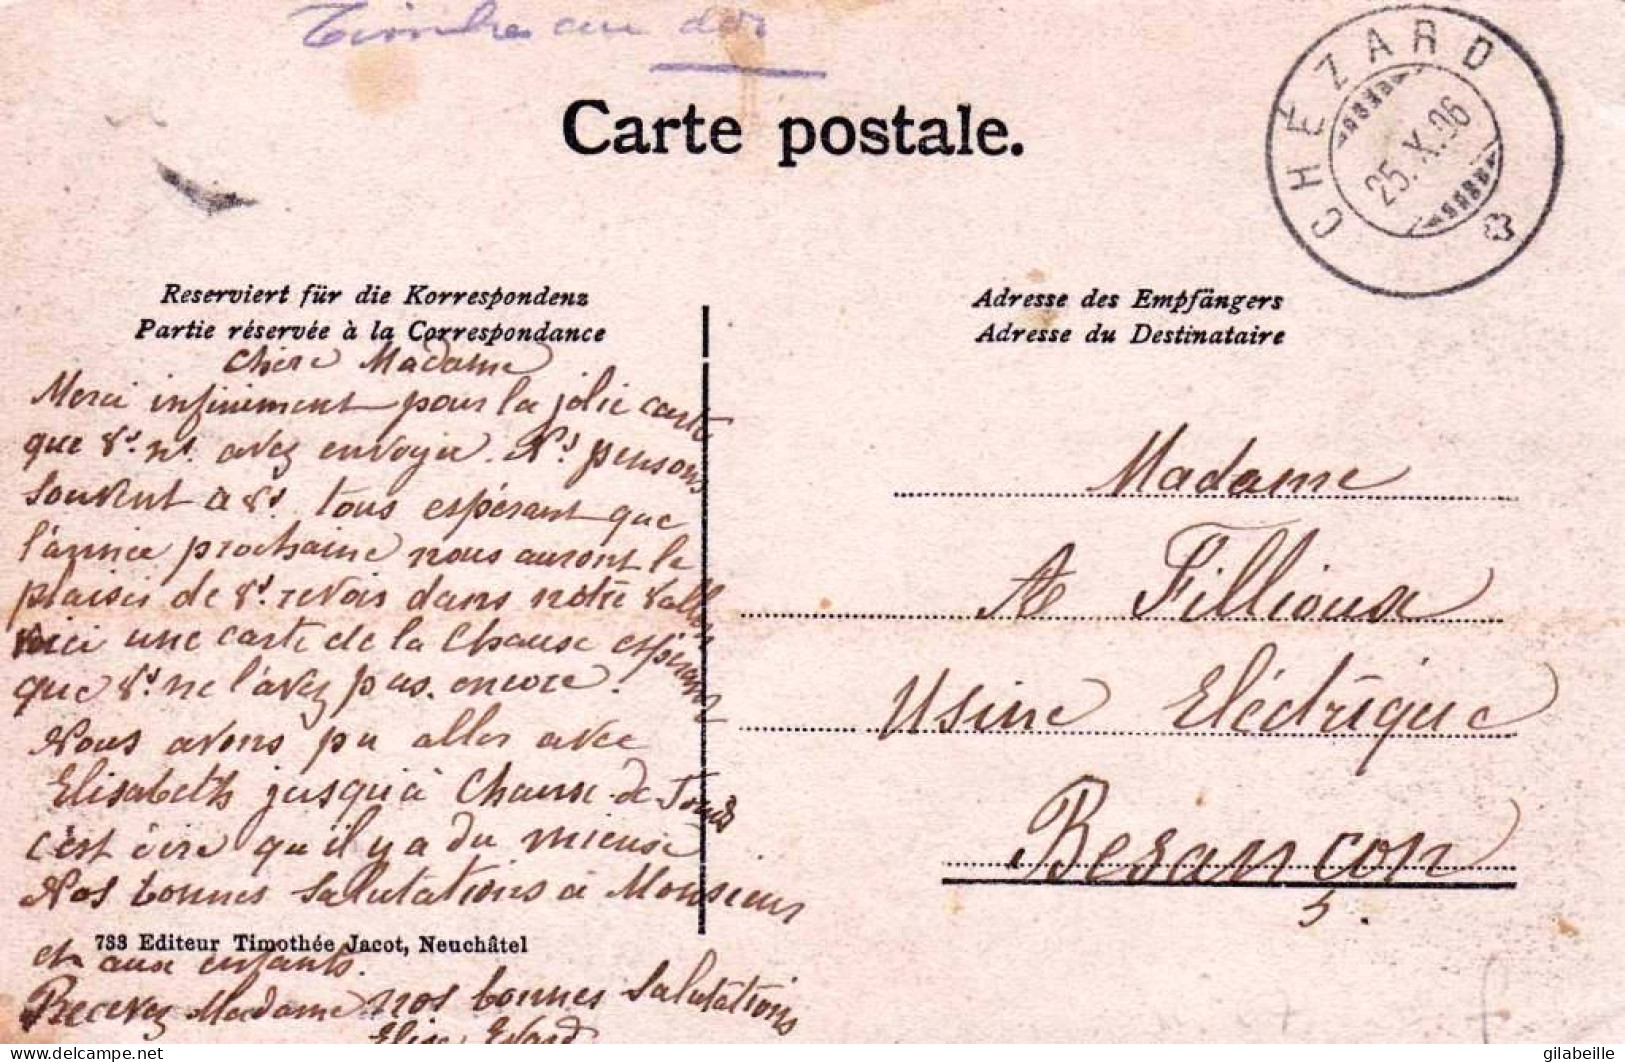 Timbres au dos
Carte postale.
CHÉZARD
25.X.06
Reserviert für die Korrespondenz
Partie réservée à la Correspondance
Adresse des Empfängers
Adresse du Destinataire
Chère Madame
Merci infiniment pour la jolie carte
que Vs. ns. avez envoyée. Ns. pensons
souvent à Vs. tous espérant que
l'année prochaine nous auront le
plaisir de Vs. revoir dans notre Vallon
voici une carte de la Chaux espérant
que Vs. ne l'avez pas encore.
Nous avons pu aller avec
Elisabeth jusqu'à Chaux-de-Fonds
c'est dire qu'il y a du mieux
Nos bonnes salutations à Monsieur
et aux enfants.
Recevez Madame nos bonnes salutations
Elise Evard
Madame
A Fillioux
Usine Eléctrique
Besançon
733 Editeur Timothée Jacot, Neuchâtel
delcampe.net
gilabeille